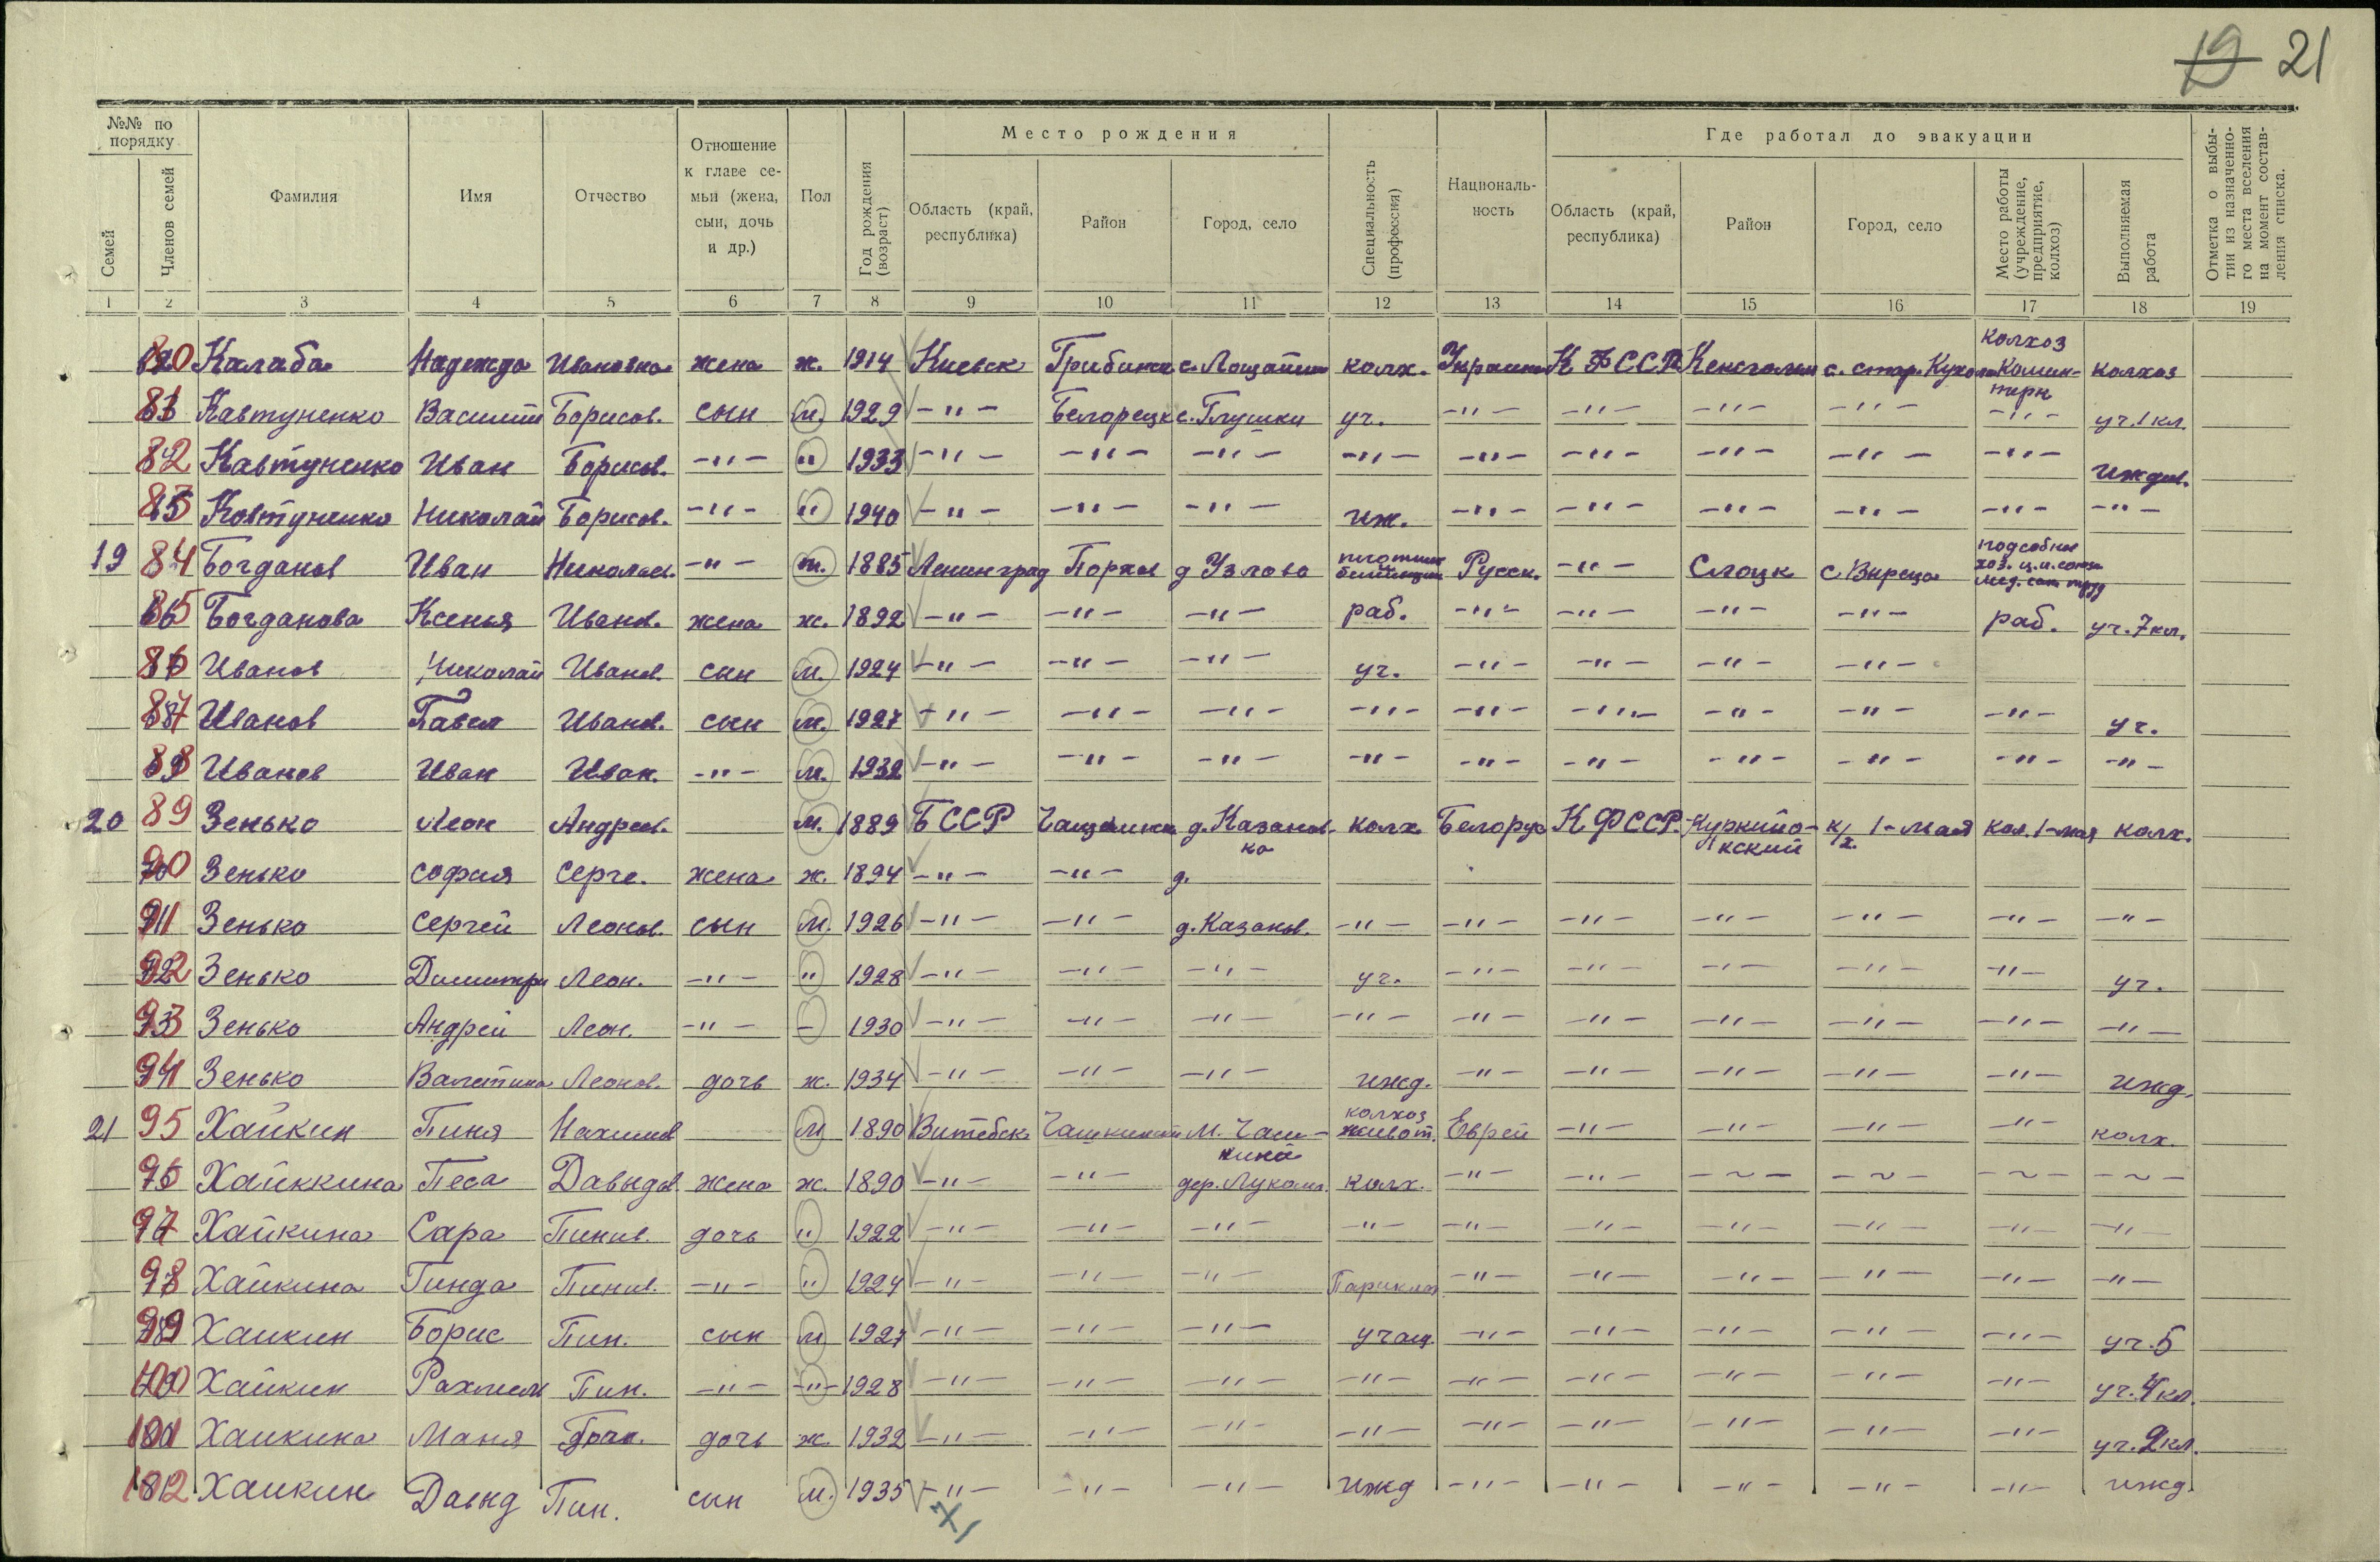 19 21
№№ по порядку
Семей
Членов семей
Фамилия
Имя
Отчество
Отношение к главе семьи (жена, сын, дочь и др.)
Пол
Год рождения (возраст)
Место рождения
Область (край, республика)
Район
Город, село
Специальность (профессия)
Национальность
Где работал до эвакуации
Область (край, республика)
Район
Город, село
Место работы (учреждение, предприятие, колхоз)
Выполняемая работа
Отметка о выбытии из назначенного места вселения на момент составления списка.
1 2 3 4 5 6 7 8 9 10 11 12 13 14 15 16 17 18 19
80 Калаба Надежда Ивановна жена ж. 1914 Киевск колх. К ФССР Колхоз Коминтерн колхоз
81 Кавтуненко Василий Борисов. сын м. 1929 -"- Белорецк с. Глушки уч. -"- -"- -"- -"- -"- уч. 1 кл.
82 Кавтуненко Иван Борисов. -"- " 1933 -"- -"- -"- -"- -"- -"- -"- -"- -"- иждив.
83 Ковтуненко Николай Борисов. -"- " 1940 -"- -"- -"- иж. -"- -"- -"- -"- -"- -"-
19 84 Богданов Иван Николаев. -"- м. 1885 Ленинград Порхов д Узлово плотник Русск. -"- Слоцк с Вырица подсобное хоз. ц.к. союза мед. сан труд
85 Богданова Ксенья Иванов. жена ж. 1892 -"- -"- -"- раб. -"- -"- -"- -"- раб. уч. 7 кл.
86 Иванов Николай Иванов. сын м. 1924 -"- -"- -"- уч. -"- -"- -"- -"-
87 Иванов Павел Иванов. сын м. 1927 -"- -"- -"- -"- -"- -"- -"- -"- -"- уч.
88 Иванов Иван Иван. -"- м. 1932 -"- -"- -"- -"- -"- -"- -"- -"- -"- -"-
20 89 Зенько Леон Андреев. м. 1889 БССР д. Казановка колх. Белорус К ФССР. Куркийокский к/х. 1-мая кол. 1-мая колх.
90 Зенько София Серге. жена ж. 1894 -"- -"- д.
91 Зенько Сергей Леонов. сын м. 1926 -"- -"- д. Казанов. -"- -"- -"- -"- -"- -"- -"-
92 Зенько Димитри Леон. -"- " 1928 -"- -"- -"- уч. -"- -"- -"- -"- -"- уч.
93 Зенько Андрей Леон. -"- - 1930 -"- -"- -"- -"- -"- -"- -"- -"- -"- -"-
94 Зенько Валентина Леонов. дочь ж. 1934 -"- -"- -"- ижд. -"- -"- -"- -"- -"- ижд.
21 95 Хайкин Пиня Нахимов м 1890 Витебск м. Чашники колхоз живот. Еврей -"- -"- -"- -"- колх.
96 Хайккина Песа Давыдов. жена ж. 1890 -"- -"- дер. Лукомл. колх. -"- -"- -~- -~- -~- -~-
97 Хайкина Сара Пинив. дочь " 1922 -"- -"- -"- -"- -"- -"- -"- -"- -"- -"-
98 Хайкина Гинда Пинив. -"- " 1924 -"- -"- -"- Парикмах -"- -"- -"- -"- -"- -"-
99 Хаикин Борис Пин. сын м 1927 -"- -"- -"- учащ. -"- -"- -"- -"- -"- уч. 5
100 Хайкин Пин. -"- -"- 1928 -"- -"- -"- -"- -"- -"- -"- -"- -"- уч. 4 кл.
101 Хаикина Маня дочь ж. 1932 -"- -"- -"- -"- -"- -"- -"- -"- -"- уч. 2 кл.
102 Хаикин Давыд Пин. сын м. 1935 -"- -"- -"- ижд -"- -"- -"- -"- -"- ижд.